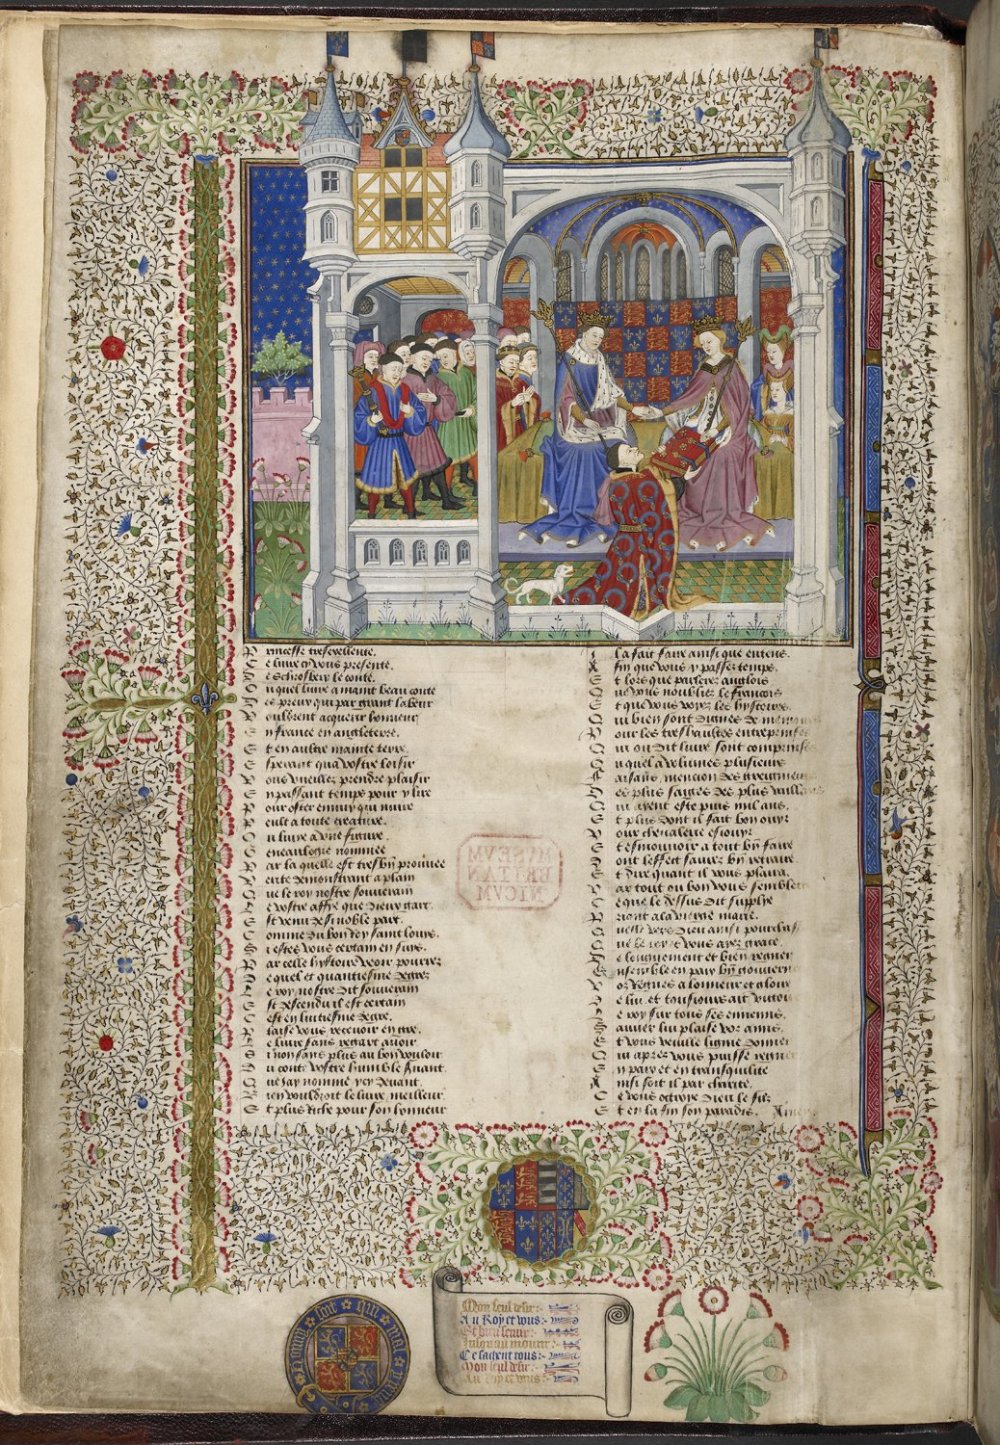 P rincesse tresexcellente,
C e livre cy vous presente,
D e Schrosbery le conte.
O u quel livre a maint beau conte
D es preux qui par grant labeur
V ouldrent acquerir honneur
E n france en angleterre,
E t en aultre mainte terre.
E sperant qua vostre loisir
V ous vueillez prendre plaisir
E n passant temps pour y lire
P our oster ennuy qui nuire
P eult a toute creature.
O u livre a une figure.
G enealogie nommee
P ar la quelle est tresbn prouvee
V erite demonstrant a plain
Q ue le roy nostre souverain
E vostre affie que dieu gart.
E st venu de si noble part.
C omme du bon roy saint louys.
S i estes vous certain en suys.
P ar celle hystoire veoir pourrez
D e quel et quantiesme degrez
L e roy nostre dit souverain
E st descendu il est certain
C est en huitiesme degre.
P laise vous recevoir en gre.
L e livre sans regart avoir
S i non sans plus au bon vouloir
D u conte vostre humble servant.
Q ue jay nomme cy devant.
B ien vouldroit le livre meilleur.
E t plus riche pour son honneur
I l a fait faire ainsi que entens.
A fin que vous y passez temps.
E t lors que parlerez anglois
Q ue vous noubliez le francois
E t que vous voyez les hystoires.
Q ui bien sont dignes de
P our les treshaultes
Q ui ou dit livre sont
O u quel a volumes plusieurs
F aisans mencion des
D es plus saiges des plus
Q ui aient este puis mil ans.
E t plus dont il fait bon ouyr
P our chevalerie esiouyr
E t esmouvoir a tout bn faire
D ont leffect saurez bn retraire
E t dire quant il vous plaira.
P ar tout ou bon vous semblera
C e que le dessus dit supplye
P riant a la vierge marie.
Q uelle vers dieu ainsi
Q ue le roy et vous avez grace.
D e longuement et bien regner
E nsemble en paix bn
V oz regnes a lonneur et gloire
D e lui et tousiours ait
L e roy sur tous ses ennemis.
S auver lui plaise voz amis.
E t vous vueille ligne donner
Q ui apres vous puisse regner
E n paix et en tranquilite
A insi soit il par charite.
C e vous octroye dieu le filz
E t en la fin son paradis. Amen
MVSEVM
BRITAN
NICVM
Mon seul desir:
Au Roy et vous:
Et bien servir:
Jusqu au mourir:
Ce sachent tous:
Mon seul desir:
Au Roy et vous: